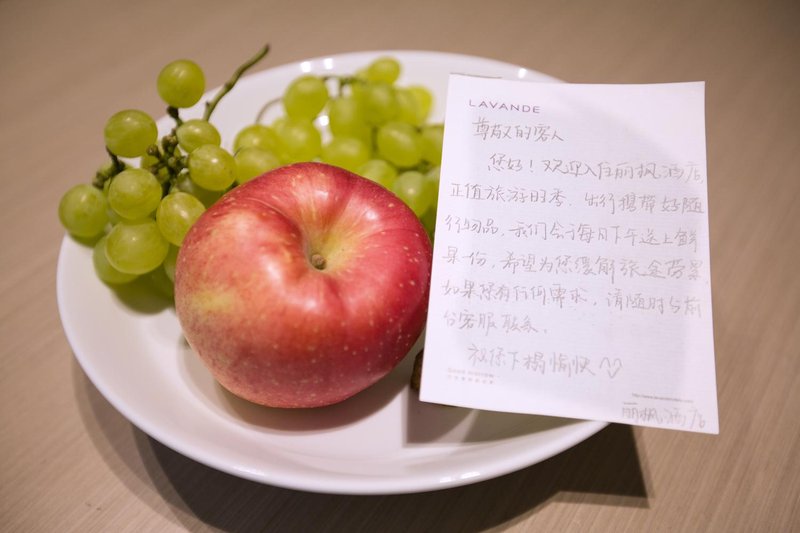 LAVANDE
尊敬的客人
您好！欢迎入住丽枫酒店,
正值旅游旺季,出行携带好随
行物品,我们会于每日下午送上鲜
果一份,希望为您缓解旅途劳累,
如果您有任何需求,请随时与前
台客服联系。
祝您下榻愉快
丽枫酒店